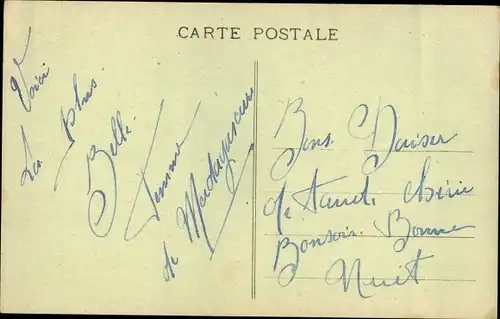 CARTE POSTALE
Voici
La plus
Belle
Femme
de Madagascar
Bons Baiser
de tanti chérie
Bonsoir Bonne
Nuit